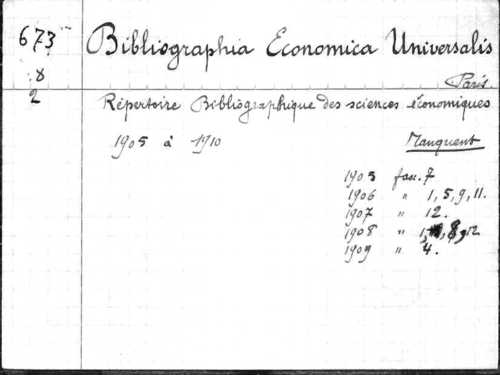 673
Bibliographia Economica Universalis
8
Paris.
2
Répertoire Bibliographique des sciences économiques
1905 à 1910
Manquent
1905 fasc. 7
1906 " 1, 5, 9, 11.
1907 " 12.
1908 " 1, 8, 9, 12
1909 " 4.